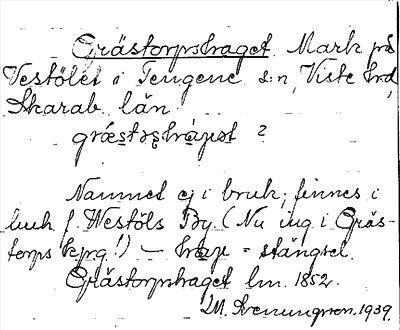 Grästorpshaget. Mark på
Vestölet i Tengene s:n, Viste hrd,
Skarab. län
?
Namnet ej i bruk; finnes i
luvh f. Westöls By (Nu ing i Gräs-
torps kpg!) – = stängsel.
Grästorpshaget lm. 1852.
M. Svenungson. 1939.